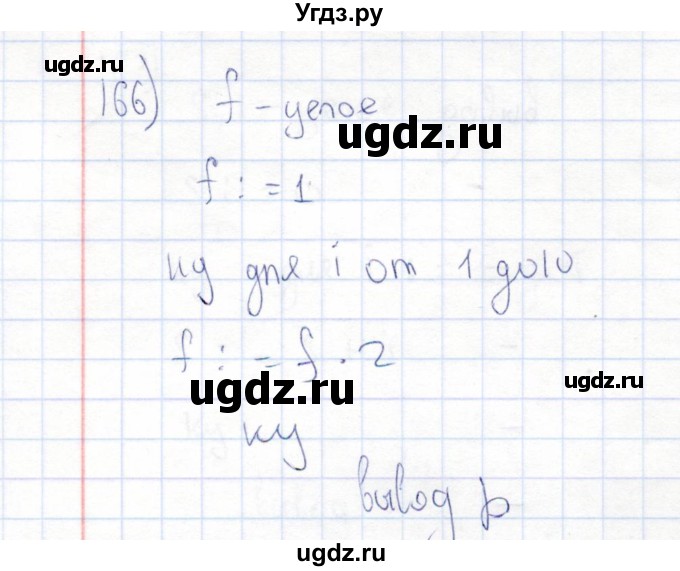 Угдз.ру
ugdz.ru
166) f - целое
ugdz.ru
f := 1
нц для i от 1 до 10
f := f · 2
ugdz.ru
ugdz.ru
кц
вывод р
ugdz.ru